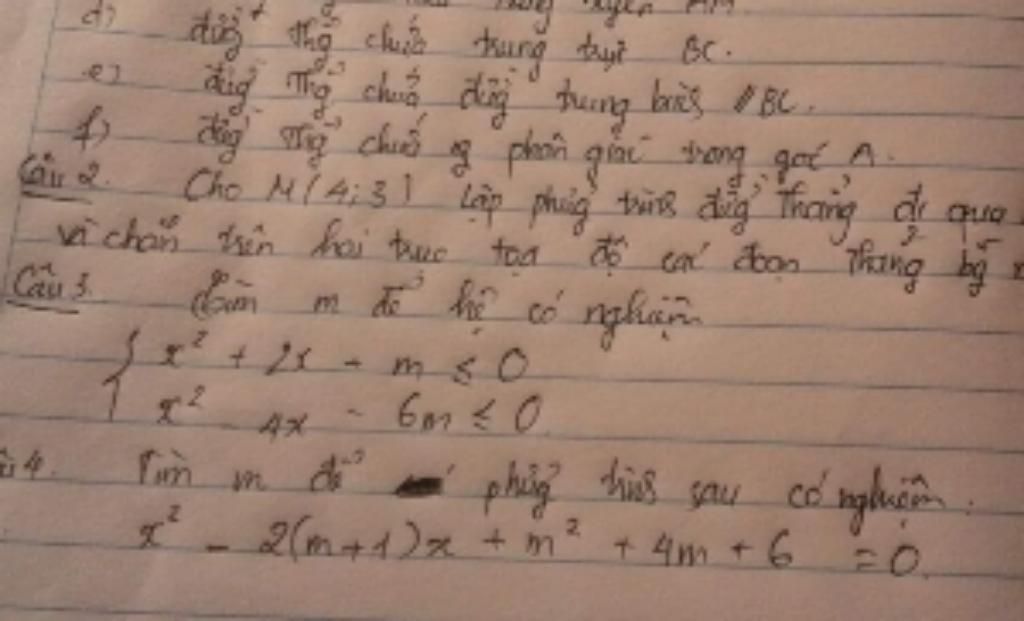 d) đưg̉ thg̉ chứa trung trực BC.
e) đưg̉ thg̉ chứa đưg̉ trung bình // BC.
f) đưg̉ thg̉ chứa phân giác trong góc A.
Câu 2. Cho M(4;3) Lập phưg̉ trình đưg̉ thẳng đi qua
và chắn trên hai trục tọa độ các đoạn thẳng bg̀
Câu 3. Tìm m để hệ có nghiệm
{ x² + 2x - m ≤ 0
x² - 4x - 6m ≤ 0
4. Tìm m để phưg̉ trình sau có nghiệm:
x² - 2(m+1)x + m² + 4m + 6 = 0.